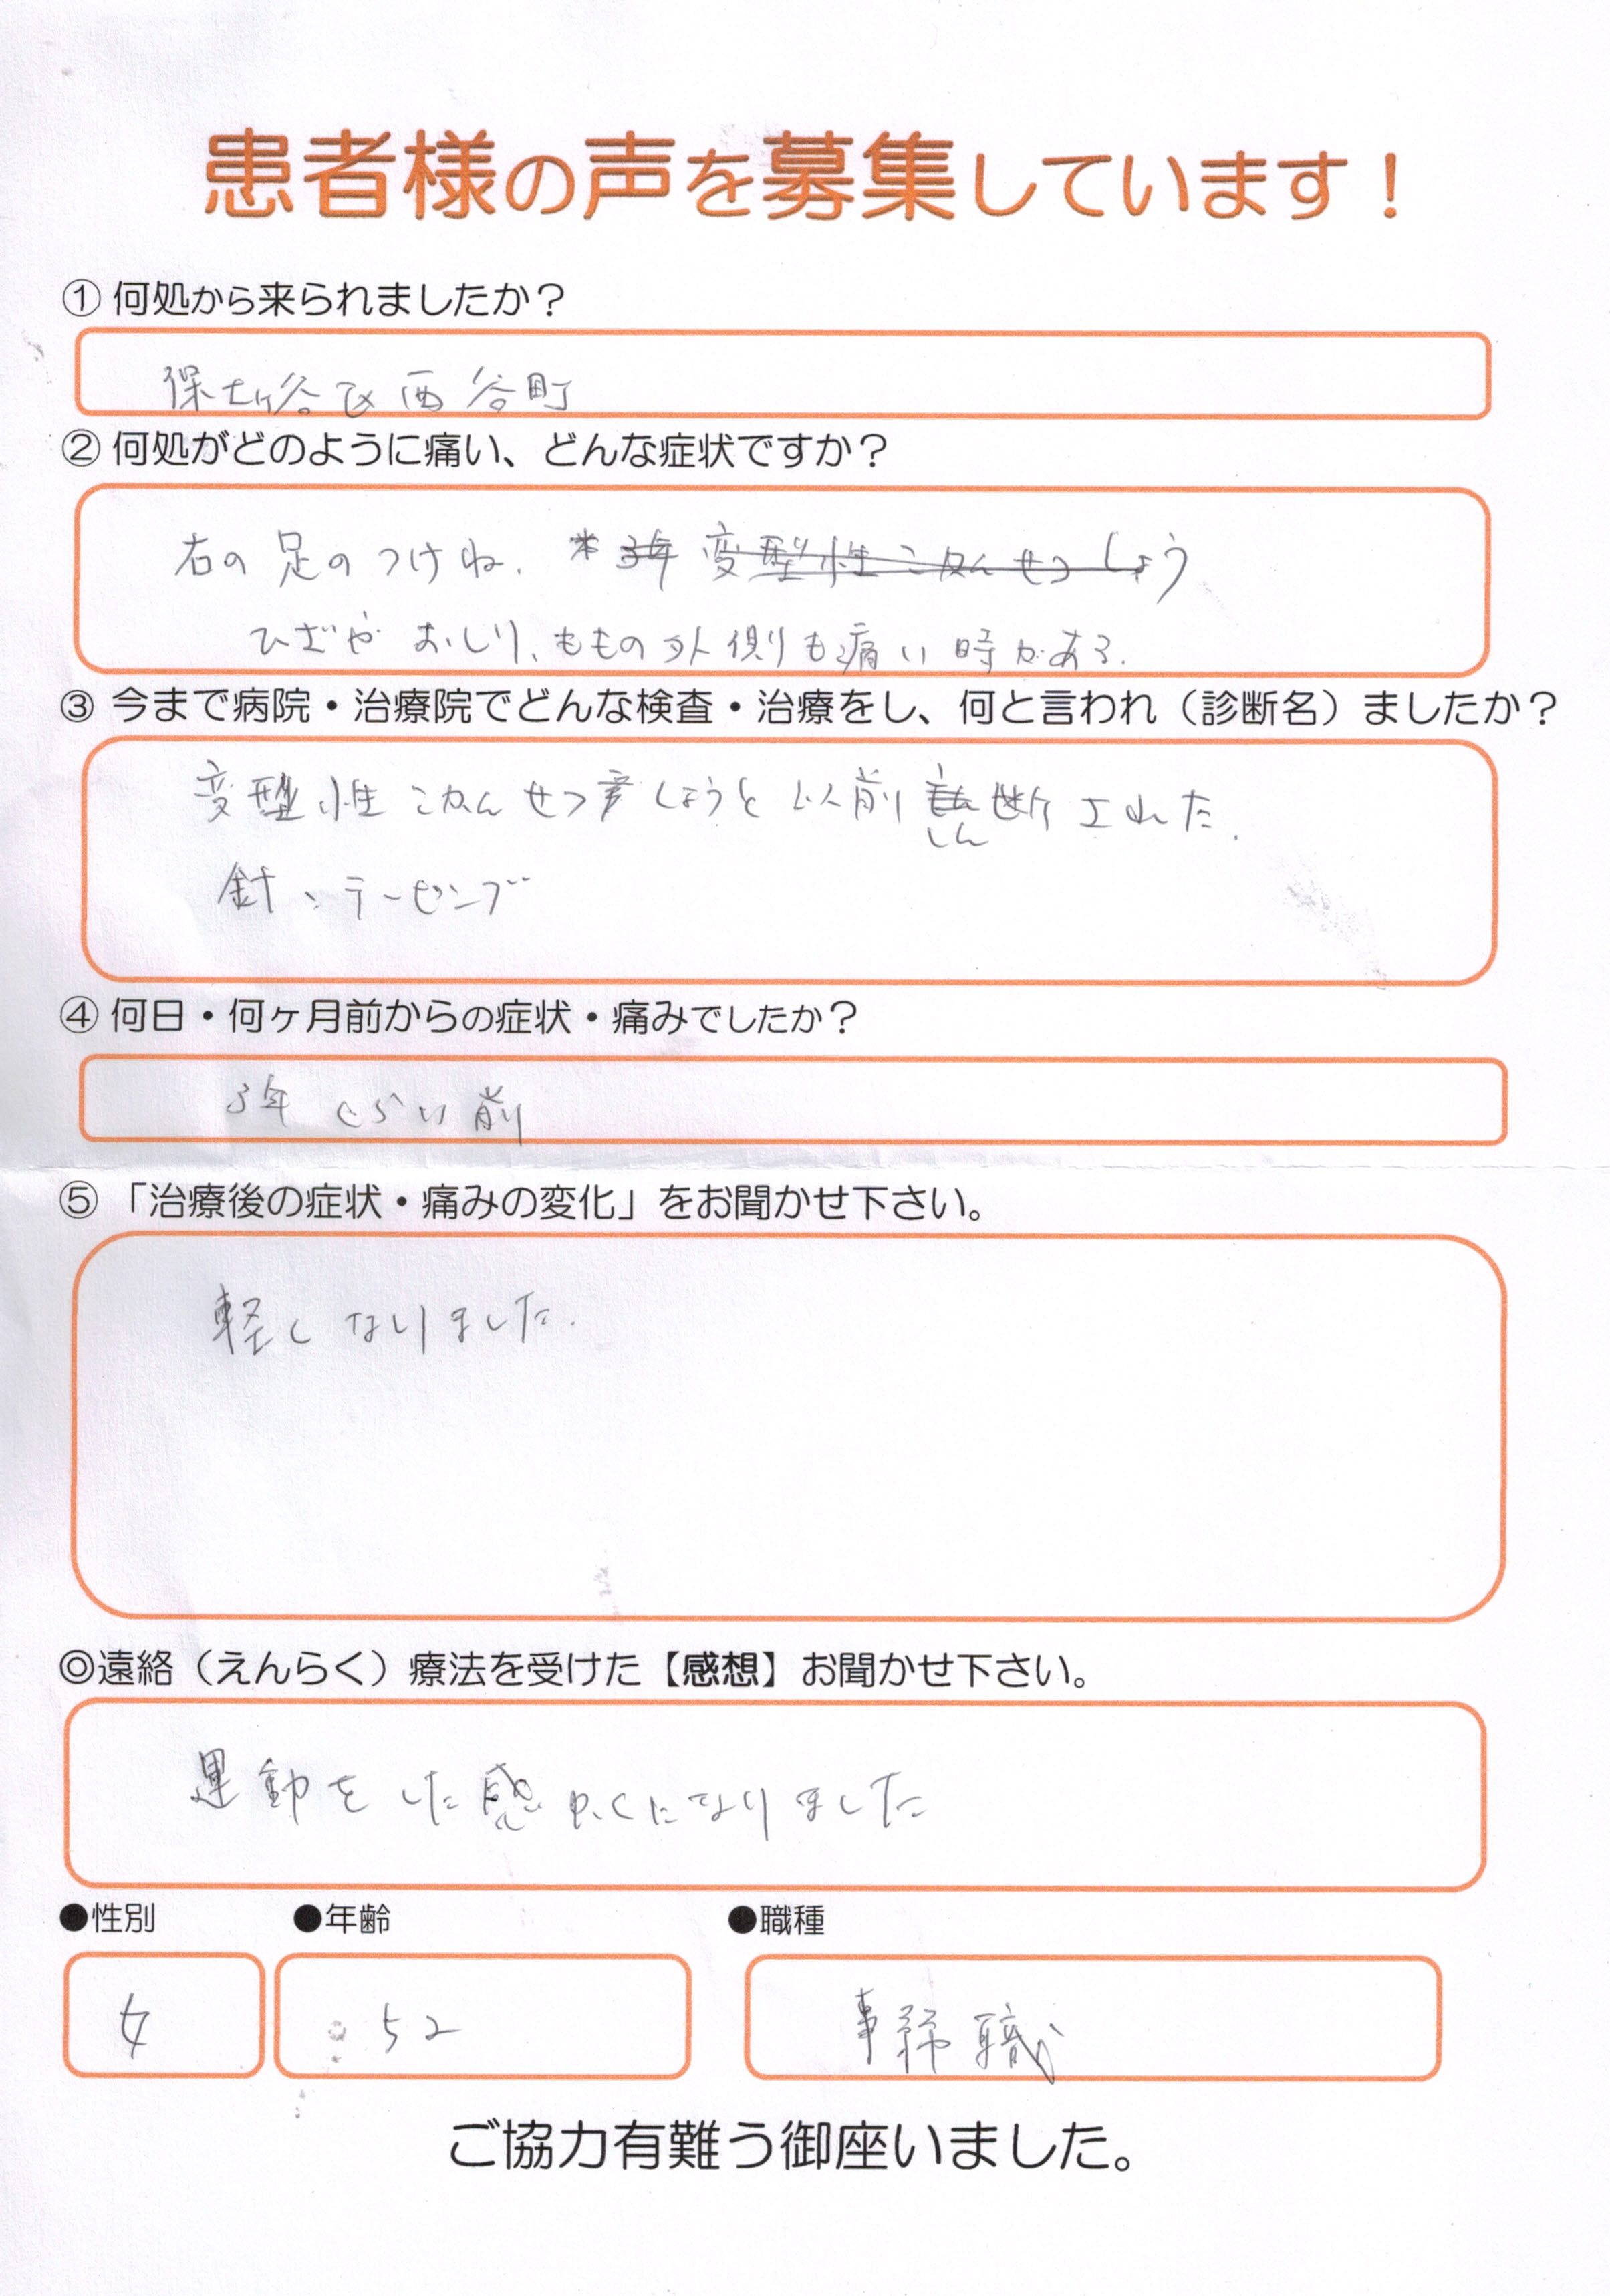 患者様の声を募集しています！
① 何処から来られましたか？
保土ヶ谷区西谷町
② 何処がどのように痛い、どんな症状ですか？
右の足のつけね. * 3年 変型性こかんせつしょう
ひざや おしり、ももの外側も痛い時がある.
③ 今まで病院・治療院でどんな検査・治療をし、何と言われ（診断名）ましたか？
変型性こかんせつしょうと以前 しん断された.
針、テーピング
④ 何日・何ヶ月前からの症状・痛みでしたか？
3年くらい前
⑤ 「治療後の症状・痛みの変化」をお聞かせ下さい。
軽くなりました.
◎遠絡（えんらく）療法を受けた【感想】お聞かせ下さい。
運動をした感かくになりました
●性別 ●年齢 ●職種
女 52 事務職
ご協力有難う御座いました。